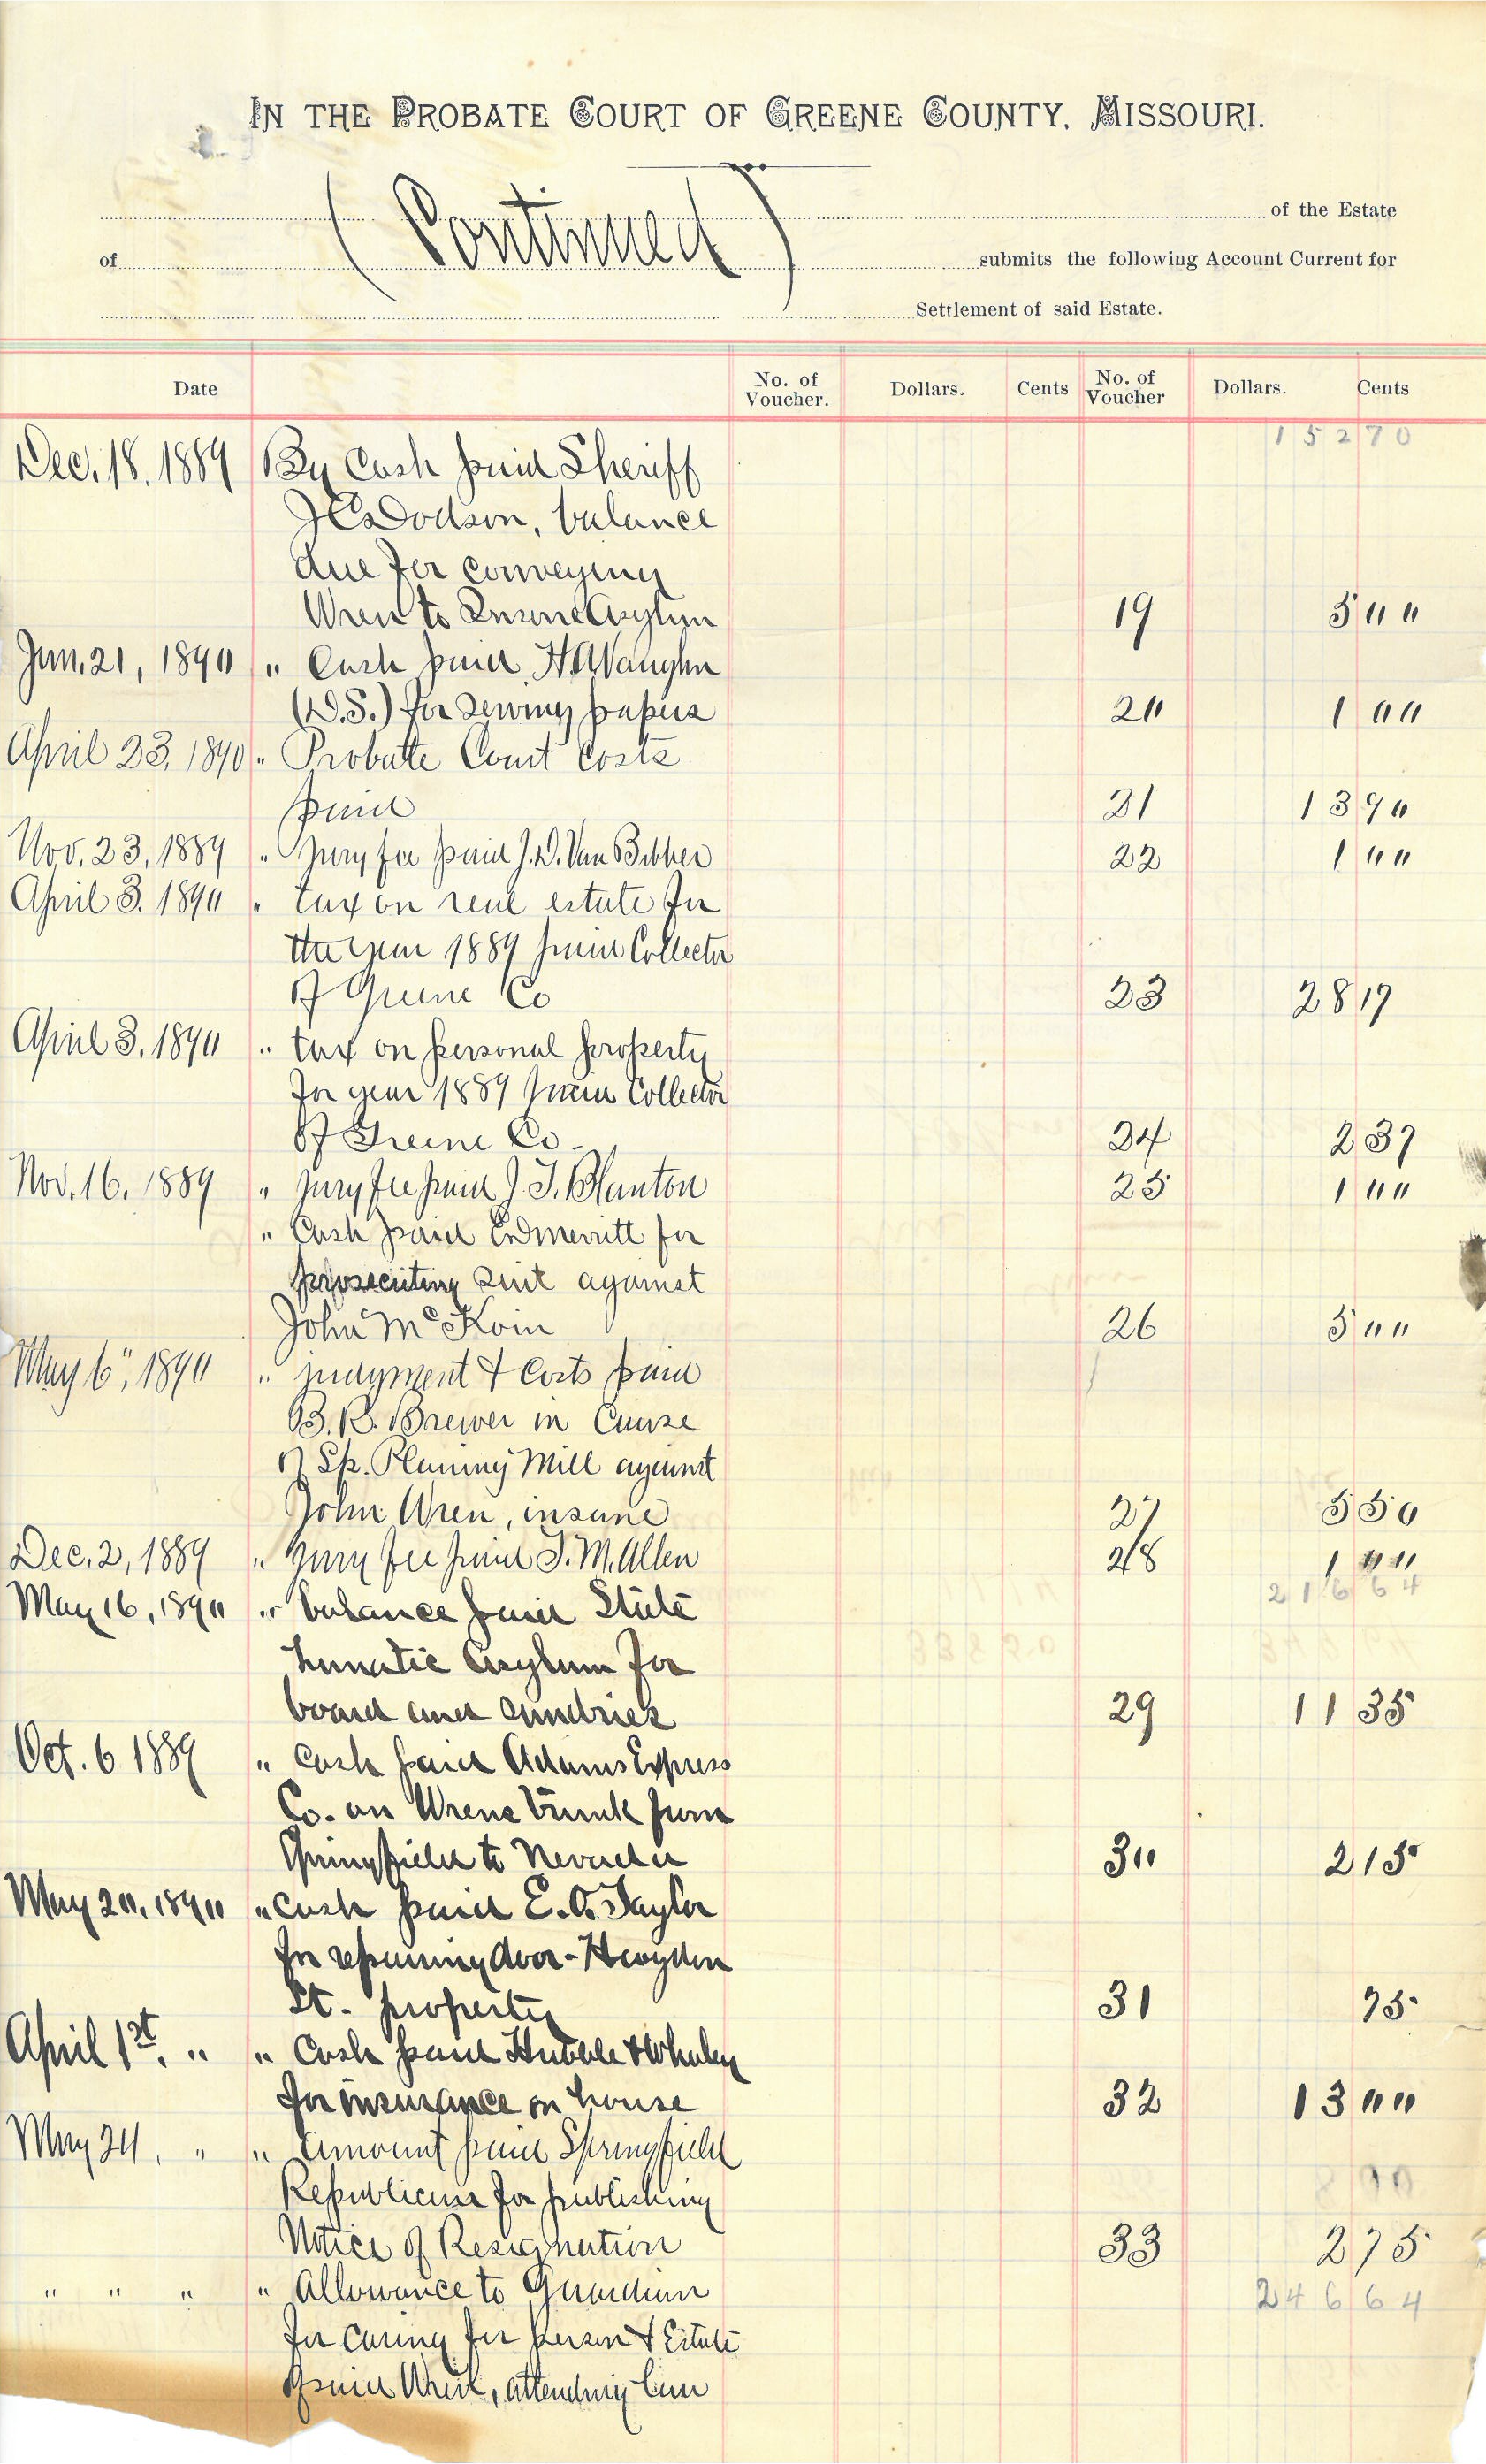 IN THE PROBATE COURT OF GREENE COUNTY, MISSOURI.
(Continued)
of the Estate
of submits the following Account Current for
Settlement of said Estate.
Date No. of Voucher. Dollars. Cents No. of Voucher Dollars. Cents
15270
Dec. 18, 1889 By Cash paid Sheriff
J C Dodson, balance
due for conveying
Wren to Insane Asylum 19 5 00
Jan. 21, 1890 " Cash paid H A Vaughn
(D.S.) for serving papers 20 1 00
April 23, 1890 " Probate Court costs
paid 21 13 90
Nov. 23, 1889 " Jury fee paid J. D. Van Bibber 22 1 00
April 3, 1890 " tax on real estate for
the year 1889 paid Collector
of Greene Co 23 28 17
April 3, 1890 " tax on personal property
for year 1889 paid Collector
of Greene Co- 24 2 37
Nov. 16, 1889 " jury fee paid J. T. Blanton 25 1 00
" Cash paid Ed Merritt for
prosecuting suit against
John McKoin 26 5 00
May 6", 1890 " judgment & Costs paid
B. R. Brewer in Cause
of Sp. Planing Mill against
John Wren, insane 27 5 50
Dec. 2, 1889 " jury fee paid T. M. Allen 28 1 00
21664
May 16, 1890 " balance paid State
Lunatic Asylum for
board and sundries 29 11 35
Oct. 6 1889 " Cash paid Adams Express
Co. on Wrens trunk from
Springfield to Nevada 30 2 15
May 20, 1890 " Cash paid E. A. Taylor
for repairing door -
St. property 31 75
April 1st, " " Cash paid Hubble & Whaley
for insurance on house 32 13 00
May 24, " " Amount paid Springfield
Republican for publishing
Notice of Resignation 33 2 75
" " " " Allowance to Guardian 24664
for caring for person & Estate
of said Wren, attending law